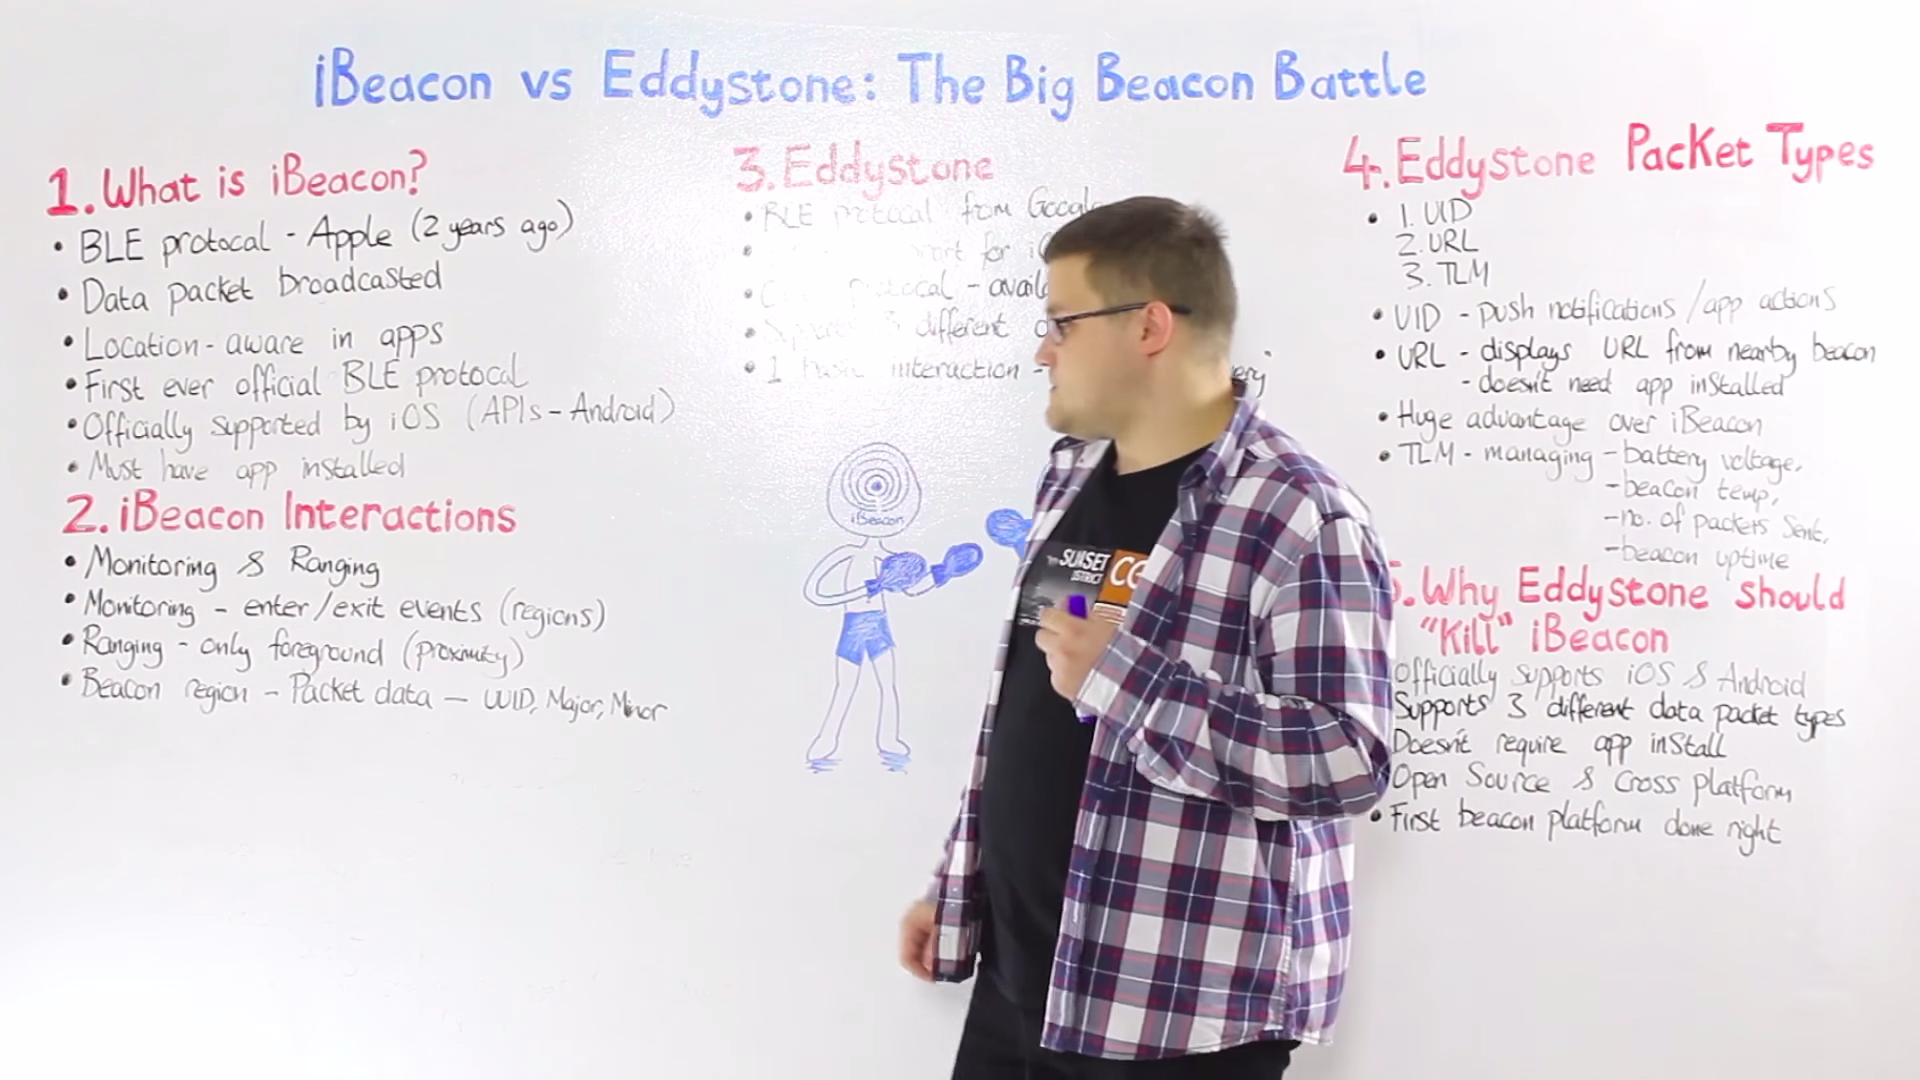 iBeacon vs Eddystone: The Big Beacon Battle
1. What is iBeacon?
• BLE protocal - Apple (2 years ago)
• Data packet broadcasted
• Location-aware in apps
• First ever official BLE protocal
• Officially supported by iOS (APIs - Android)
• Must have app installed
2. iBeacon Interactions
• Monitoring & Ranging
• Monitoring - enter/exit events (regions)
• Ranging - only foreground (proximity)
• Beacon region - Packet data - UUID, Major, Minor
3. Eddystone
• BLE protocal from Google
for
protocal -
• 3 different
• 1 interaction -
iBeacon
SUNSET
DISTRICT
4. Eddystone Packet Types
• 1. UID
2. URL
3. TLM
• UID - push notifications / app actions
• URL - displays URL from nearby beacon
- doesn't need app installed
• Huge advantage over iBeacon
• TLM - managing - battery voltage,
- beacon temp,
- no. of packets sent,
- beacon uptime
5. Why Eddystone should
"Kill" iBeacon
Officially supports iOS & Android
Supports 3 different data packet types
Doesn't require app install
Open Source & Cross platform
• First beacon platform done right